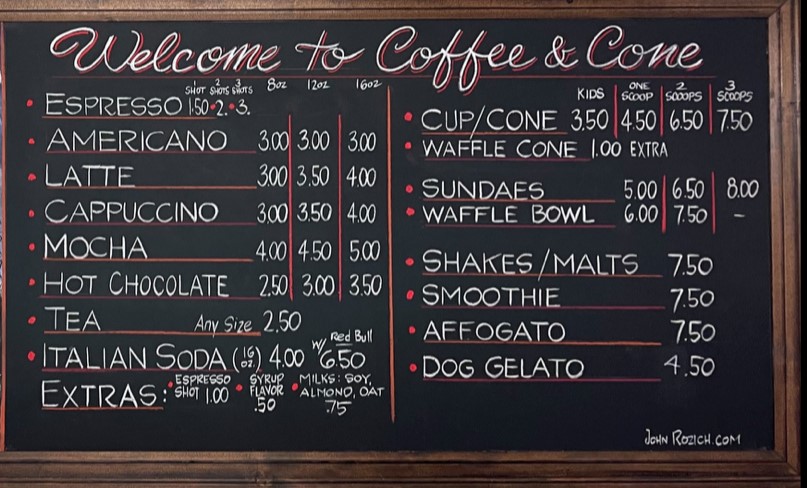 Welcome to Coffee & Cone
SHOT 2 SHOTS 3 SHOTS 8oz 12oz 16oz
• ESPRESSO 1.50 • 2. • 3.
• AMERICANO 3.00 3.00 3.00
• LATTE 3.00 3.50 4.00
• CAPPUCCINO 3.00 3.50 4.00
• MOCHA 4.00 4.50 5.00
• HOT CHOCOLATE 2.50 3.00 3.50
• TEA Any Size 2.50
• ITALIAN SODA (16 oz) 4.00 w/ Red Bull 6.50
EXTRAS: • ESPRESSO SHOT 1.00 • SYRUP FLAVOR .50 • MILKS: SOY, ALMOND, OAT .75
KIDS ONE SCOOP 2 SCOOPS 3 SCOOPS
• CUP/CONE 3.50 4.50 6.50 7.50
• WAFFLE CONE 1.00 EXTRA
• SUNDAES 5.00 6.50 8.00
• WAFFLE BOWL 6.00 7.50 –
• SHAKES/MALTS 7.50
• SMOOTHIE 7.50
• AFFOGATO 7.50
• DOG GELATO 4.50
JOHN ROZICH.COM